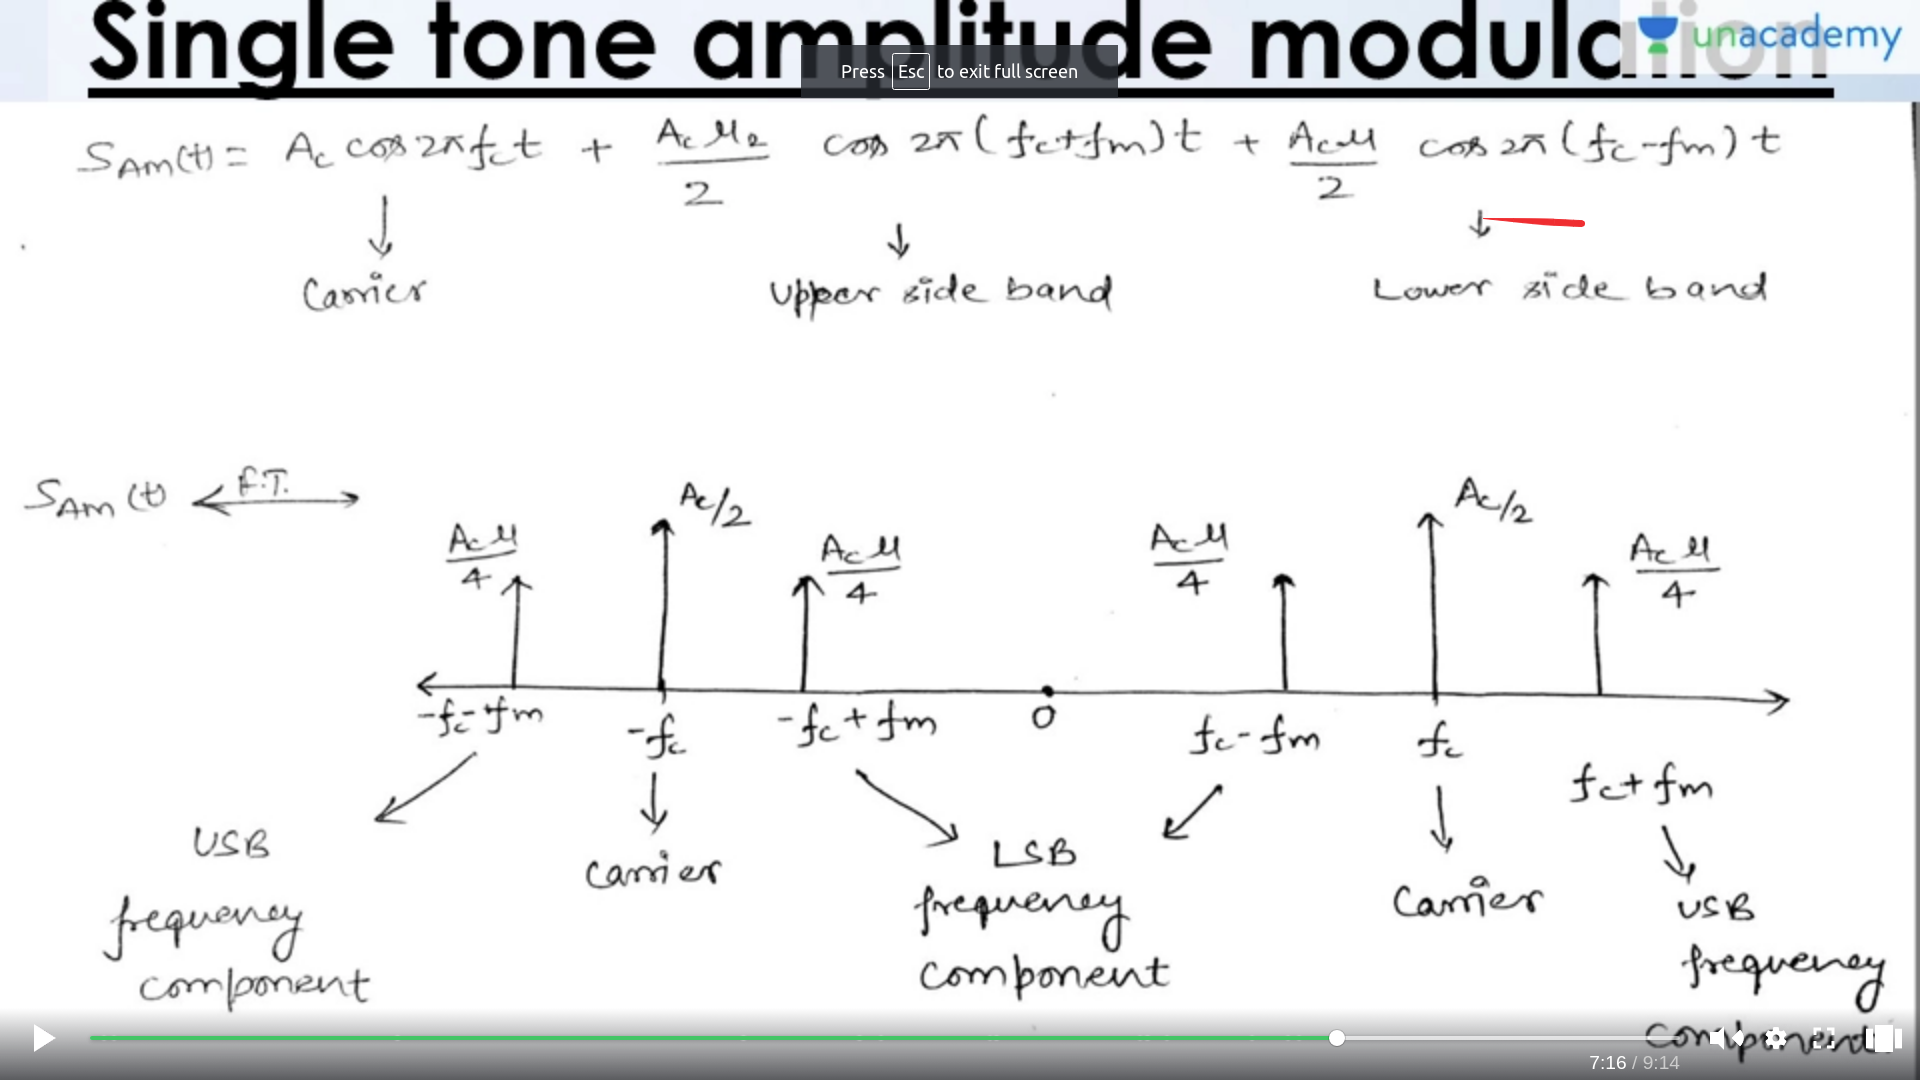 Single tone amplitude modulation
unacademy
Press Esc to exit full screen
S_AM(t) = A_c cos 2π f_c t + A_c μ_2 / 2 cos 2π (f_c + f_m) t + A_c μ / 2 cos 2π (f_c - f_m) t
↓ ↓ ↓
Carrier Upper side band Lower side band
S_AM(t) ←F.T.→
A_c μ / 4 A_c/2 A_c μ / 4 A_c μ / 4 A_c/2 A_c μ / 4
-f_c - f_m -f_c -f_c + f_m 0 f_c - f_m f_c f_c + f_m
USB carrier LSB Carrier USB
frequency frequency frequency
component component component
7:16 / 9:14